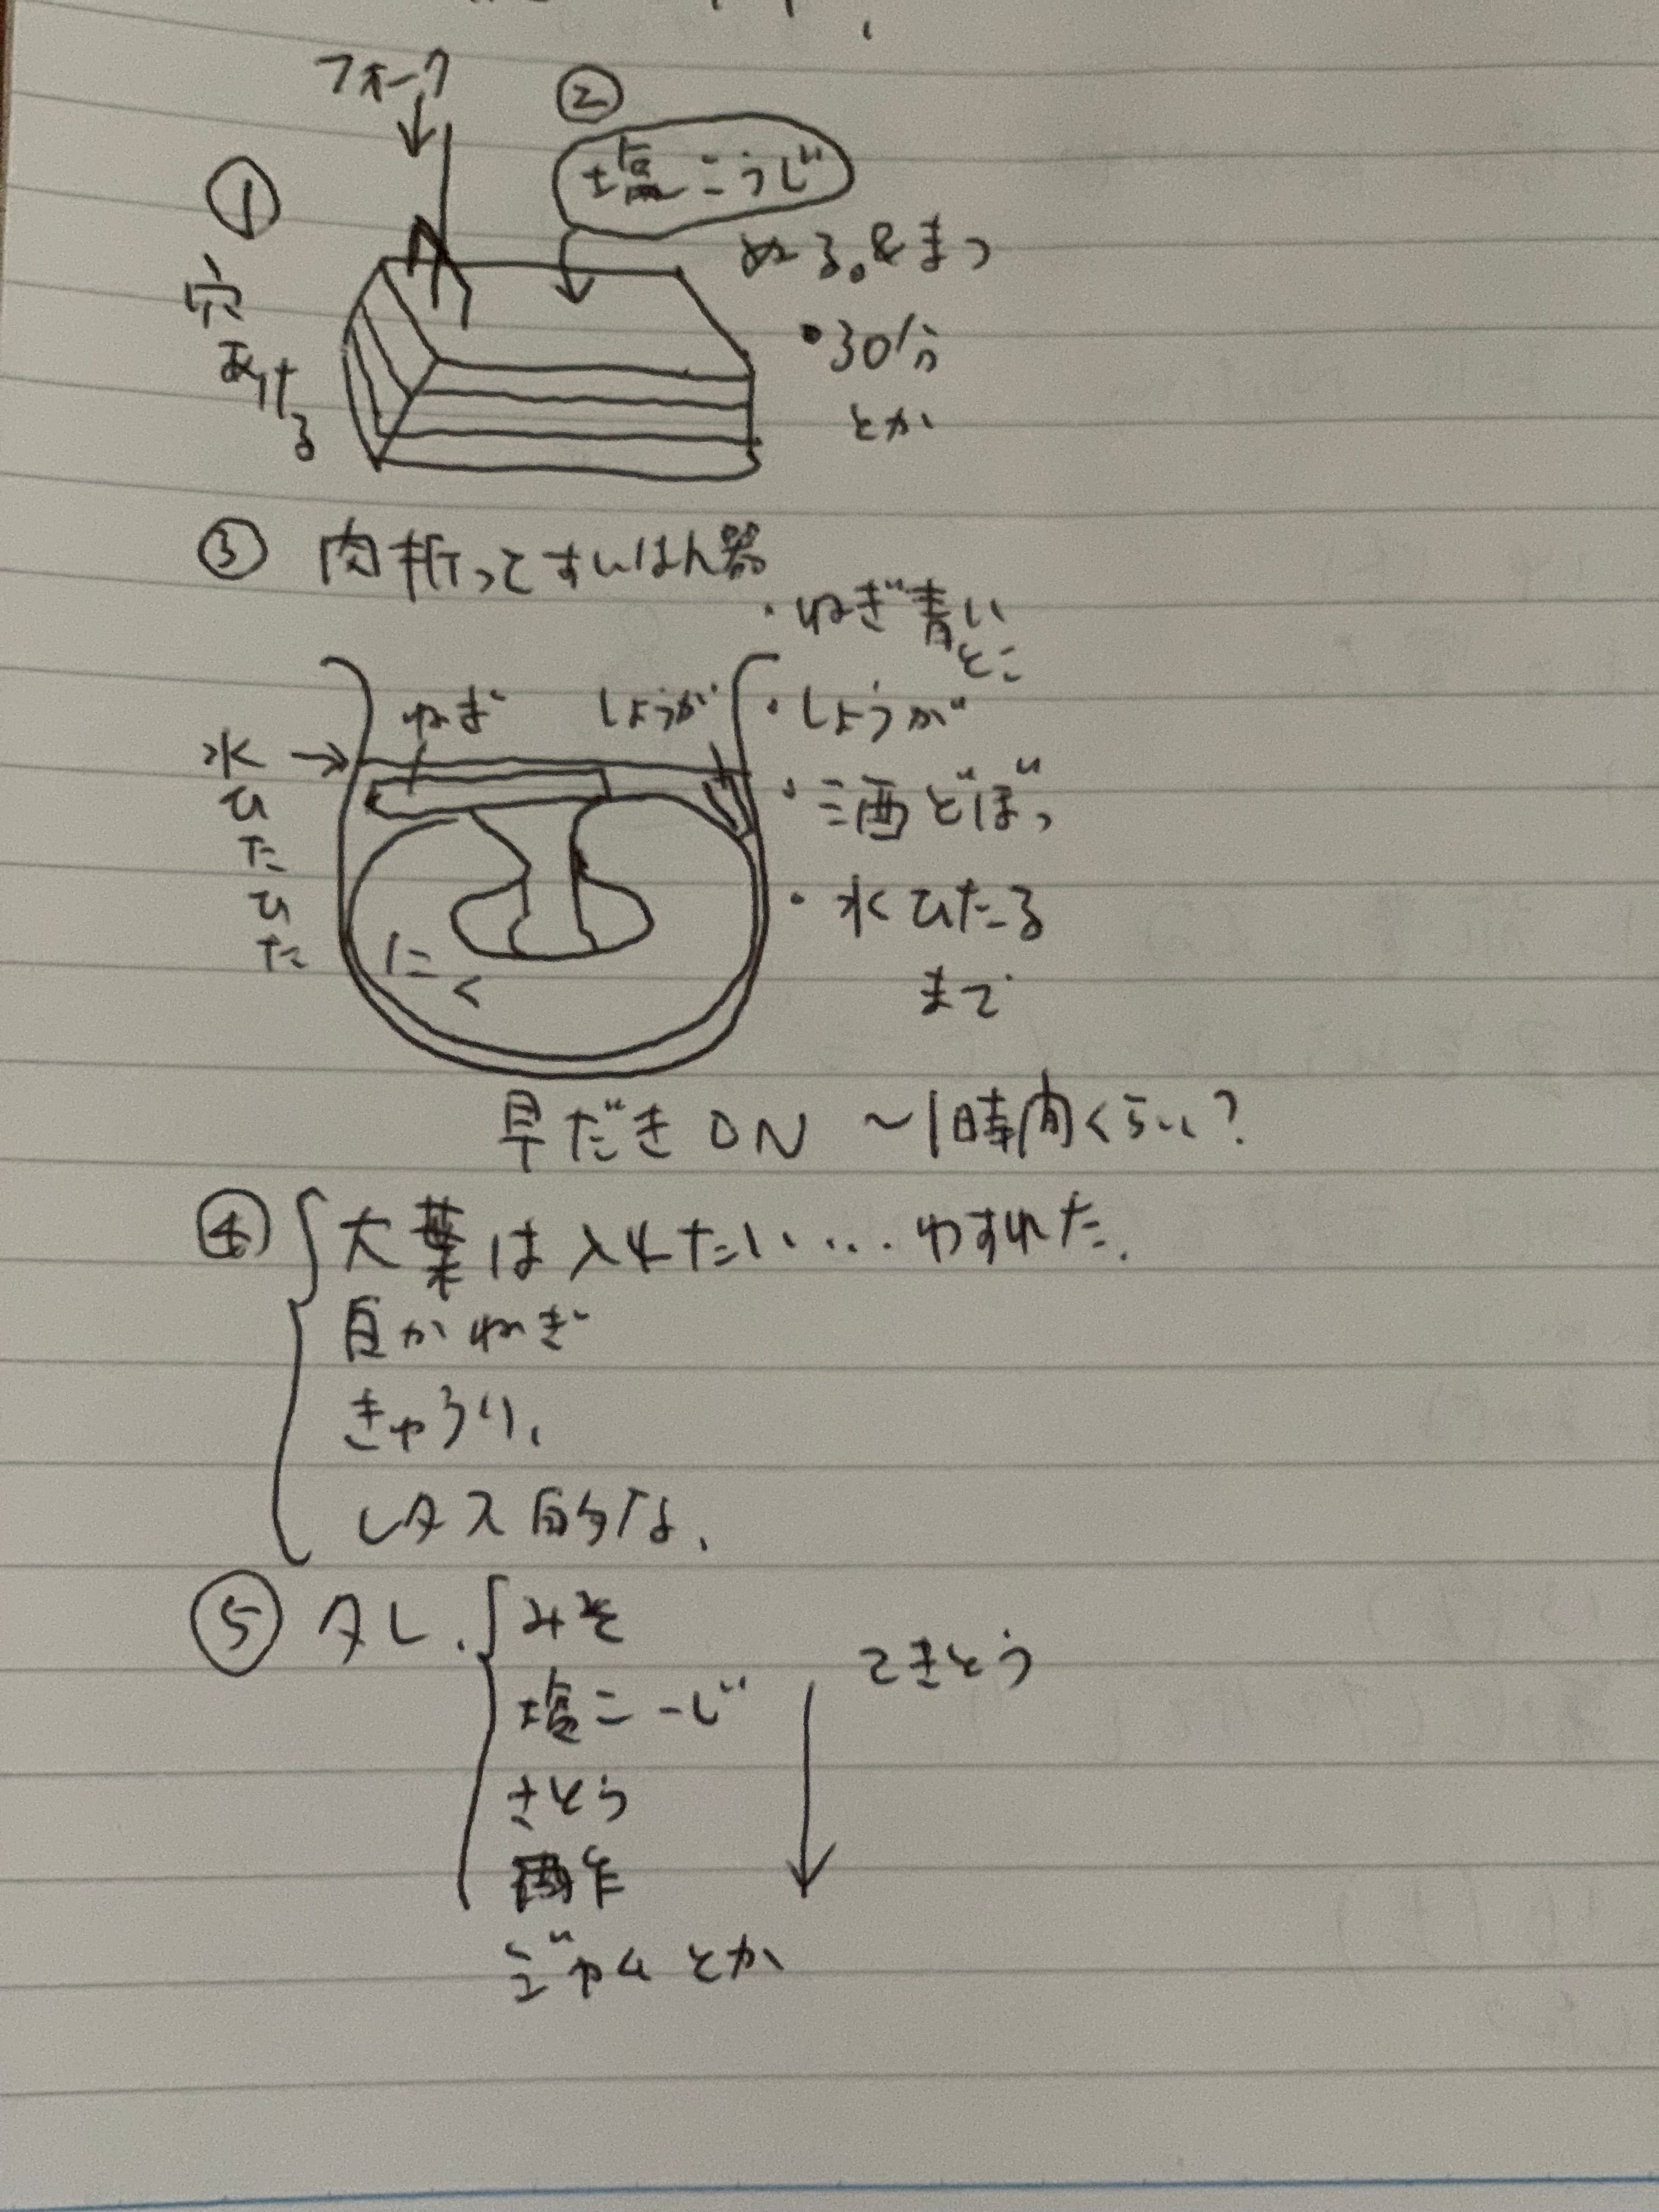 フォーク
①
穴
あける
②
塩こうじ
ぬる。&まつ
・30分
とか
③ 肉折ってすいはん器
・ねぎ青い
とこ
・しょうが
・酒どぼっ
・水ひたる
まで
ねぎ
しょうが
水
ひ
た
ひ
た
にく
早だきON 〜1時間くらい?
④ 大葉は入れたい…わすれた.
白かねぎ
きゅうり、
レタス的な、
⑤ タレ.
みそ
塩こーじ
さとう
酢
ごやムとか
てきとう